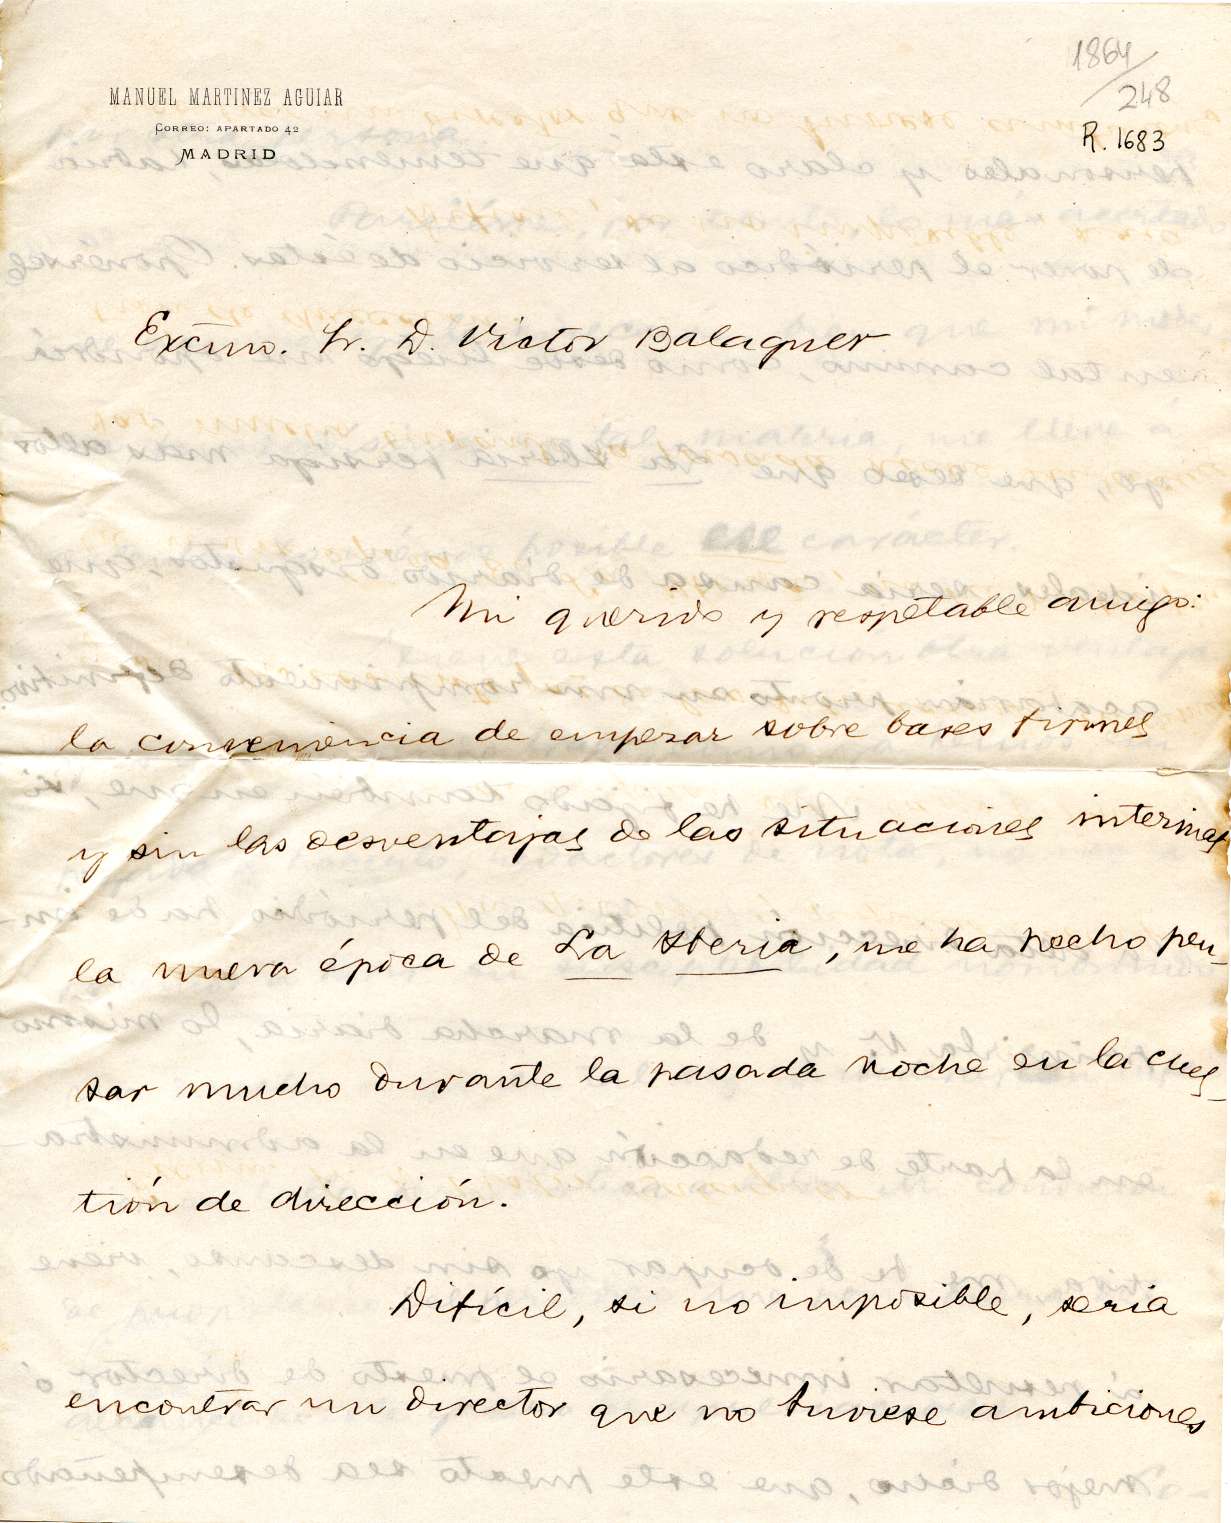 MANUEL MARTINEZ AGUIAR
CORREO: APARTADO 42
MADRID
1864/248
R. 1683
Excmo. Sr. D. Victor Balaguer
Mi querido y respetable amigo:
la conveniencia de empezar sobre bases firmes
y sin las desventajas de las situaciones interinas
la nueva época de La Iberia, me ha hecho pen-
sar mucho durante la pasada noche en la cues-
tión de dirección.
Difícil, si no imposible, seria
encontrar un director que no tuviese ambiciones